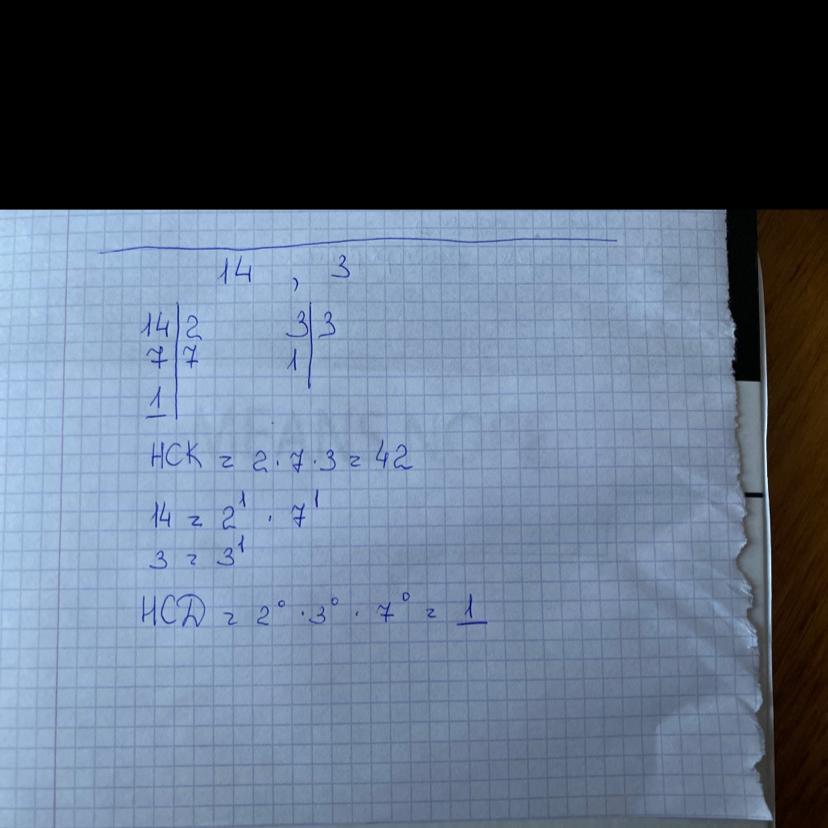 14 , 3
14|2 3|3
7|7 1|
1|
НСК = 2 · 7 · 3 = 42
14 = 2¹ · 7¹
3 = 3¹
НСД = 2⁰ · 3⁰ · 7⁰ = 1